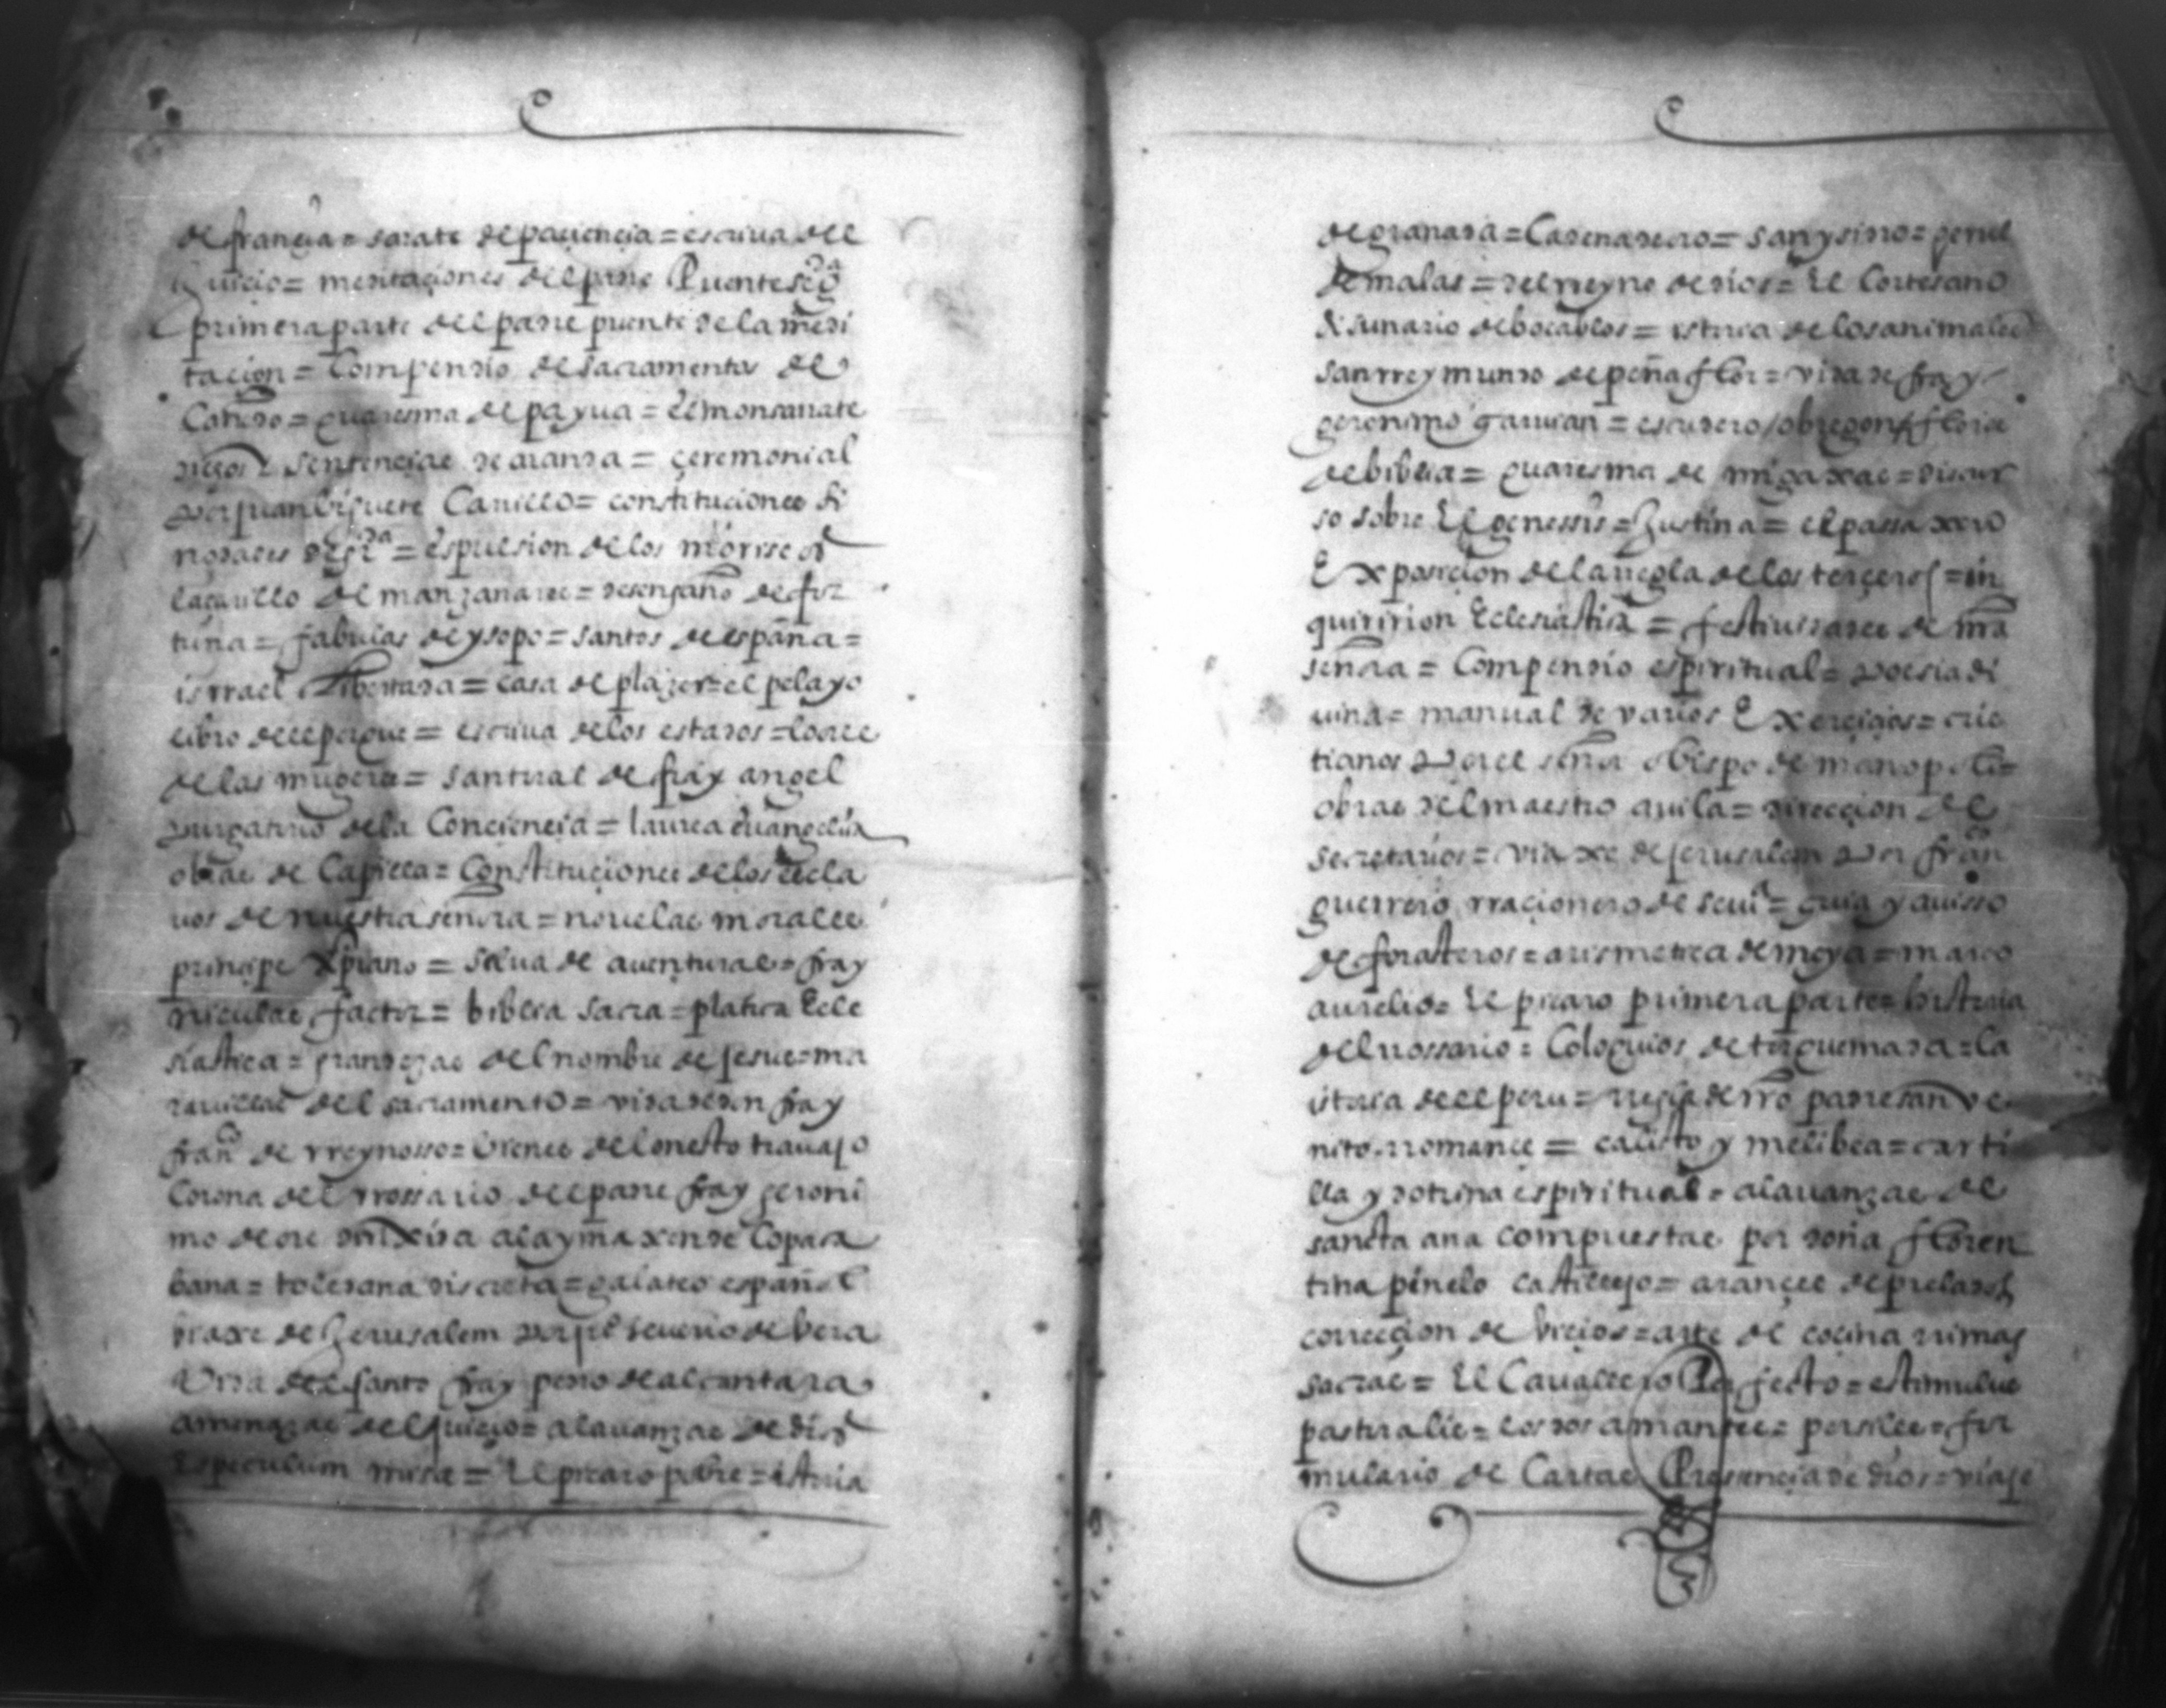 de françia = sarate de paçiençia = escriua del
juiçio = meditaçiones del padre Puente seg^da
primera parte del padre puente de la medi
taçion = Compendio de sacramentos de
= quaresma de payua = el monserrate
sentençias de aranda = çeremonial
por juan Canillo = constituciones si
nodales = espulsion de los
laçarillo de mançanares = desengaño de for
tuna = fabulas de ysopo = santos de españa =
isrrael libertada = casa de plazer = el pelayo
libro del = escriua de los estados = loores
de las mugeres = santoral de fray angel
purgatorio de la Conçiençia = laurea euangelica
obras de Capilla = Constituçiones de los escla
uos de nuestra señora = nouelas morales
prinçipe xpiano = selua de auenturas = fray
niculas factor = biblia sacra = platica Ecle
siastica = grandezas del nombre de jesus = ma
rauillas del sacramento = vida de don fray
fran^co de rreynosso = bienes del onesto trauajo
Corona del rrossario del padre fray geroni
mo de ore de Copaca
bana = toledana discreta = galateo español
viaxe de Jerusalem por seuerio de vera
Vida del santo fray pedro de alcantara
amenazas del juiçio = alauanzas de dios
Especulum = El picaro pobre = istoria
de granada = Cadenadeoro = sanysidro = peniel
de malas = del rreyno de dios = El Cortesano
disunario de bocablos = istoria de los animales
san rreymundo de peñaflor = vida de fray
geronimo = escudero obregon = floria
de biblia = quaresma de = discur
so sobre El genessis = Justina = el passaxero
Exposiçion de la rregla de los terçeros = in
quiriçion Eclesiastica = festiuidades de nra
señora = Compendio espiritual = poesia di
uina = manual de varios Exerçiçios = cris
tianos Por el señor obispo de
obras del maestro auila = direcçion de
secretarios = viaxe de jerusalem por fran^co
guerrero rraçionero de seui^a = guia y auisso
de forasteros = arismetica de moya = marco
aurelio = El picaro primera parte = historia
del rrossario = Coloquios de torquemada = la
istoria del peru = rregla de nro padre san ve
nito rromançe = calisto y melibea = carti
lla y dotrina espiritual = alauanzas de
sancta ana compuestas por doña floren
tina pinelo castillejo = arançel de prelados
correcçion de viçios = arte de coçina rrimas
sacras = El Cauallero Perfecto = estimulus
pastoralis = los dos amantes = persiles = for
mulario de Cartas Presençia de dios = viaje